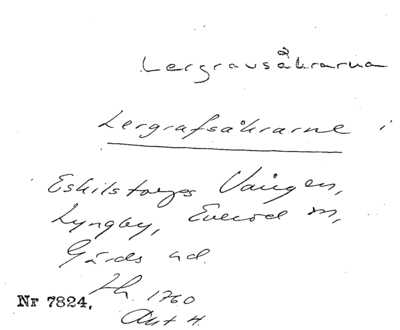 Lergravsåkrarna
Lergrafsåkrarne i
Eskilstorps Vången,
Lyngby, Everöd m,
Gärds hd.
Lh. 1760
Akt 4.
Nr 7824.